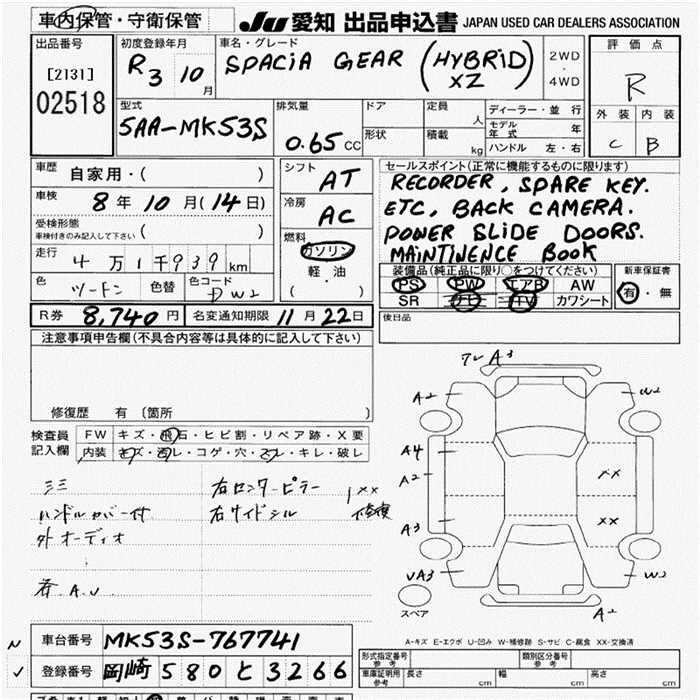 車内保管・守衛保管 JU 愛知 出品申込書 JAPAN USED CAR DEALERS ASSOCIATION
出品番号
[2131]
02518
初度登録年月
R3 10月
車名・グレード
SPACIA GEAR (HYBRID XZ)
2WD
・
4WD
評価点
R
外装 内装
C B
型式
5AA-MK53S
排気量
0.65 CC
ドア
形状
定員
人
積載
kg
ディーラー・並行
モデル年式 年
ハンドル 左・右
車歴
自家用・( )
車検
8年10月(14日)
受検形態
車検付きのみ記入して下さい ( )
走行
4万1千939km
色
ツートン
色替
色コード
DW2
シフト
AT
冷房
AC
燃料
ガソリン
軽・油
( ・ )
セールスポイント(正常に機能するものに限ります)
RECORDER, SPARE KEY.
ETC, BACK CAMERA.
POWER SLIDE DOORS.
MAINTINENCE BOOK
装備品(純正品に限り○をつけてください)
PS PW エアB AW
SR ナビ TV カワシート
新車保証書
有・無
R券 8,740円 名変通知期限 11月22日
後日品
注意事項申告欄(不具合内容等は具体的に記入して下さい)
修復歴 有 〔箇所 〕
検査員
記入欄
FW キズ・飛石・ヒビ割・リペア跡・X要
内装 キズ・汚レ・コゲ・穴・スレ・キレ・破レ
三ミ
ハンドルカバー付
外オーディオ
右センターピラー
右サイドシル
1XX
修復
A.V
ワレ A3
A2
W2
A4
A2
XX
A3
XX
VA3
W2
A2
スペア
A-キズ E-エクボ U-凹み W-補修跡 S-サビ C-腐食 XX-交換済
車台番号 MK53S-767741
登録番号 岡崎 580 と 3266
形式指定番号
参考
類別区分番号
参考
車庫証明用
参考
長さ cm
幅 cm
高さ cm